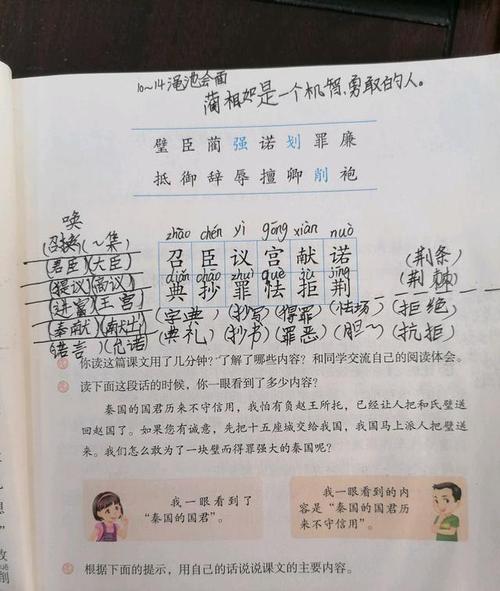 10~14 渑池会面
蔺相如是一个机智、勇敢的人。
璧 臣 蔺 强 诺 划 罪 廉
抵 御 辞 辱 擅 卿 削 袍
唤
zhào chén yì gōng xiàn nuò
(召唤)(~集) 召 臣 议 宫 献 诺 (荆条)
(君臣)(大臣) diǎn chāo zhuì què jù jīng (荆棘)
(提议)(商议) 典 抄 罪 怯 拒 荆
(进宫)(王宫) (字典)(抄写)(得罪)(怯场)(拒绝)
(奉献)(献出) (典礼)(抄书)(罪恶)(胆~)(抗拒)
(诺言)(允诺)
你读这篇课文用了几分钟?了解了哪些内容?和同学交流自己的阅读体会。
读下面这段话的时候,你一眼看到了多少内容?
秦国的国君历来不守信用,我怕有负赵王所托,已经让人把和氏璧送
回赵国了。如果您有诚意,先把十五座城交给我国,我国马上派人把璧送
来。我们怎么敢为了一块璧而得罪强大的秦国呢?
我一眼看到了
“秦国的国君”。
我一眼看到的内
容是“秦国的国君历
来不守信用”。
根据下面的提示,用自己的话说说课文的主要内容。
思
”
效
削